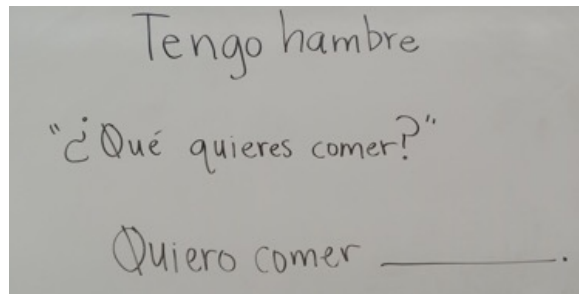 Tengo hambre
"¿Qué quieres comer?"
Quiero comer __________.